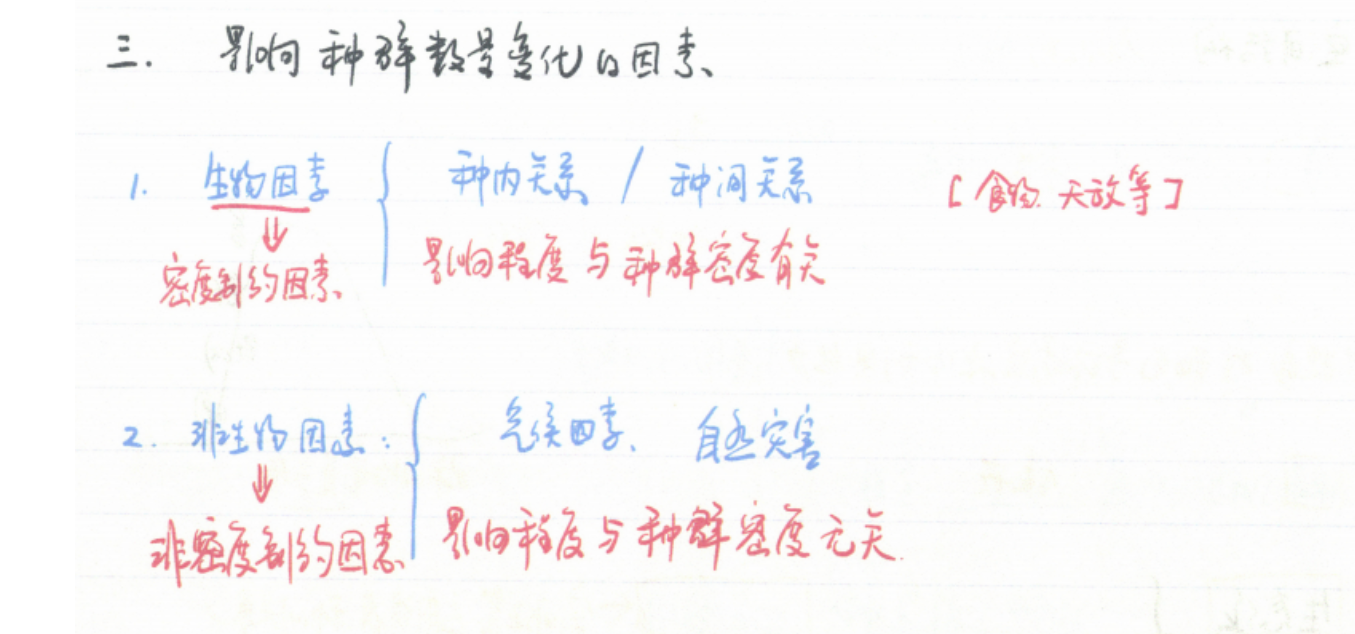 三. 影响种群数量变化的因素
1. 生物因素 { 种内关系 / 种间关系 [食物.天敌等]
⇓ 影响程度与种群密度有关
密度制约因素
2. 非生物因素: { 气候因素、自然灾害
⇓
非密度制约因素 影响程度与种群密度无关.